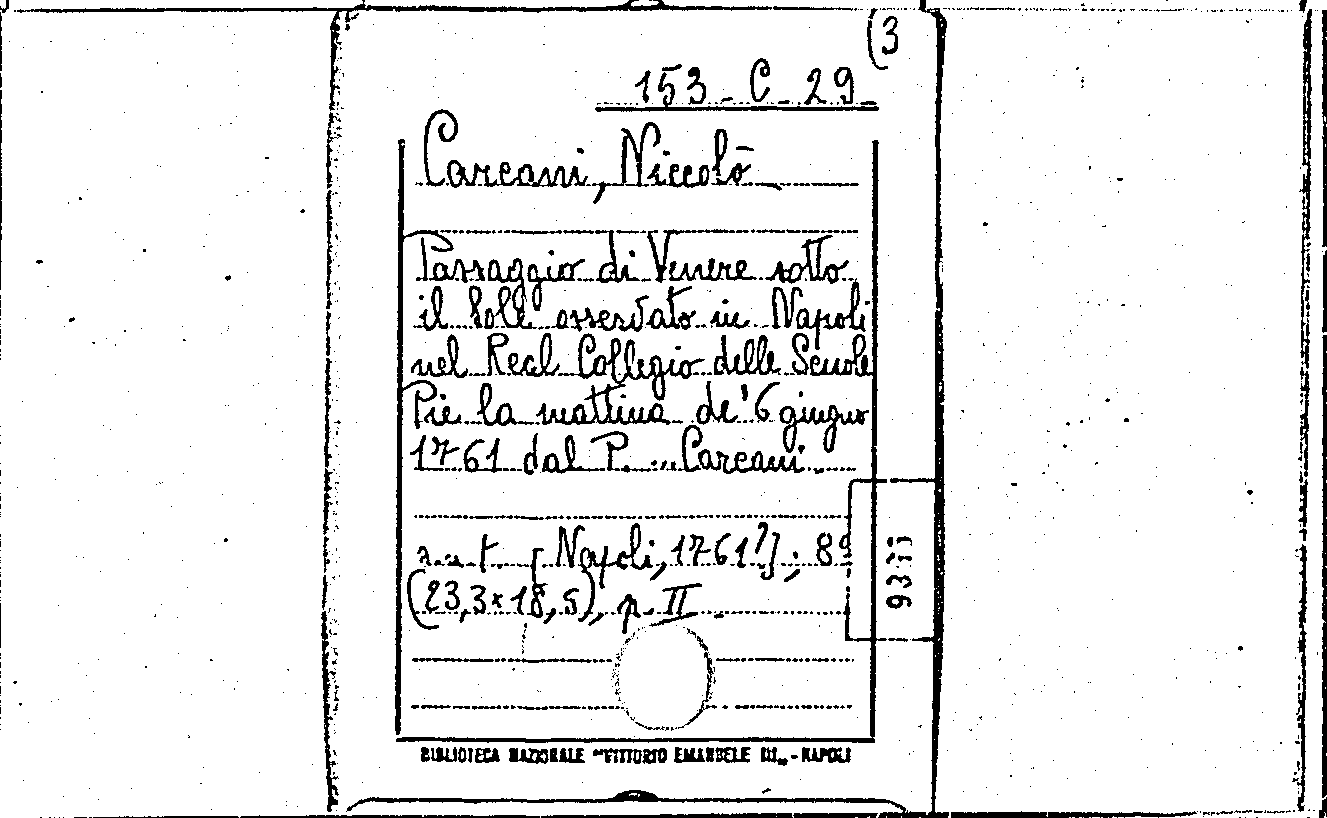 (3
153 - C - 29
Carcani, Niccolò
Passaggio di Venere sotto
il Sole osservato in Napoli
nel Real Collegio delle Scuole
Pie la mattina de' 6 giugno
1761 dal P. ... Carcani.
s.n.t. [Napoli, 1761?]; 8°
(23,3×18,5), p. II.
BIBLIOTECA NAZIONALE "VITTORIO EMANUELE III" - NAPOLI